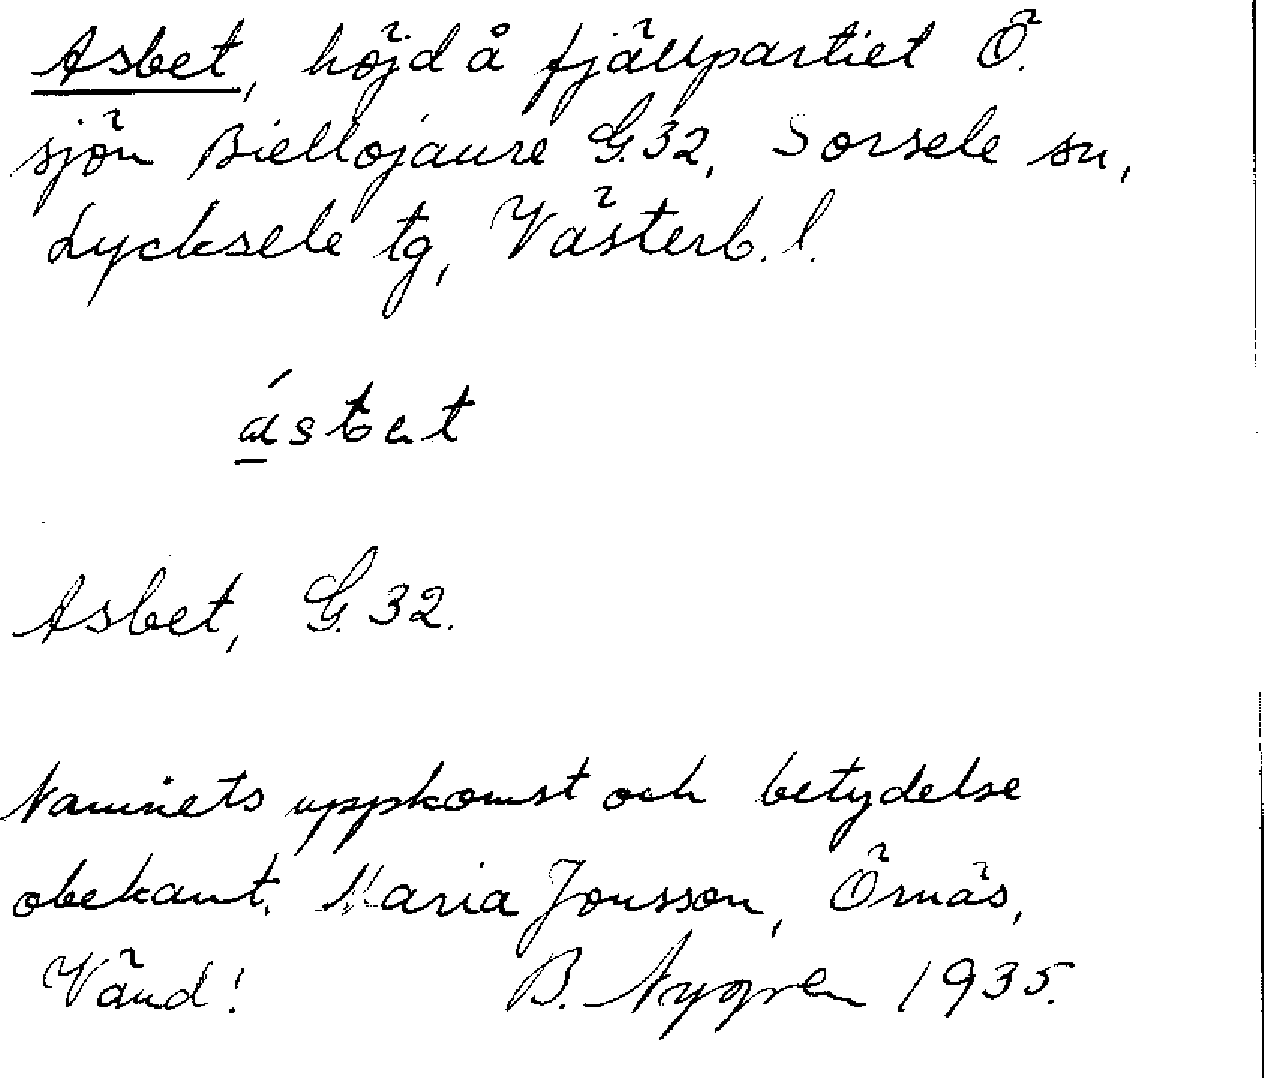 Asbet, höjd å fjällpartiet Ö.
sjön Biellojaure G.32, Sorsele sn,
Lycksele tg, Västerb. l.
Asbet, G.32.
Namnets uppkomst och betydelse
obekant. Maria Jonsson, Örnäs,
Vänd! B. Nygren 1935.